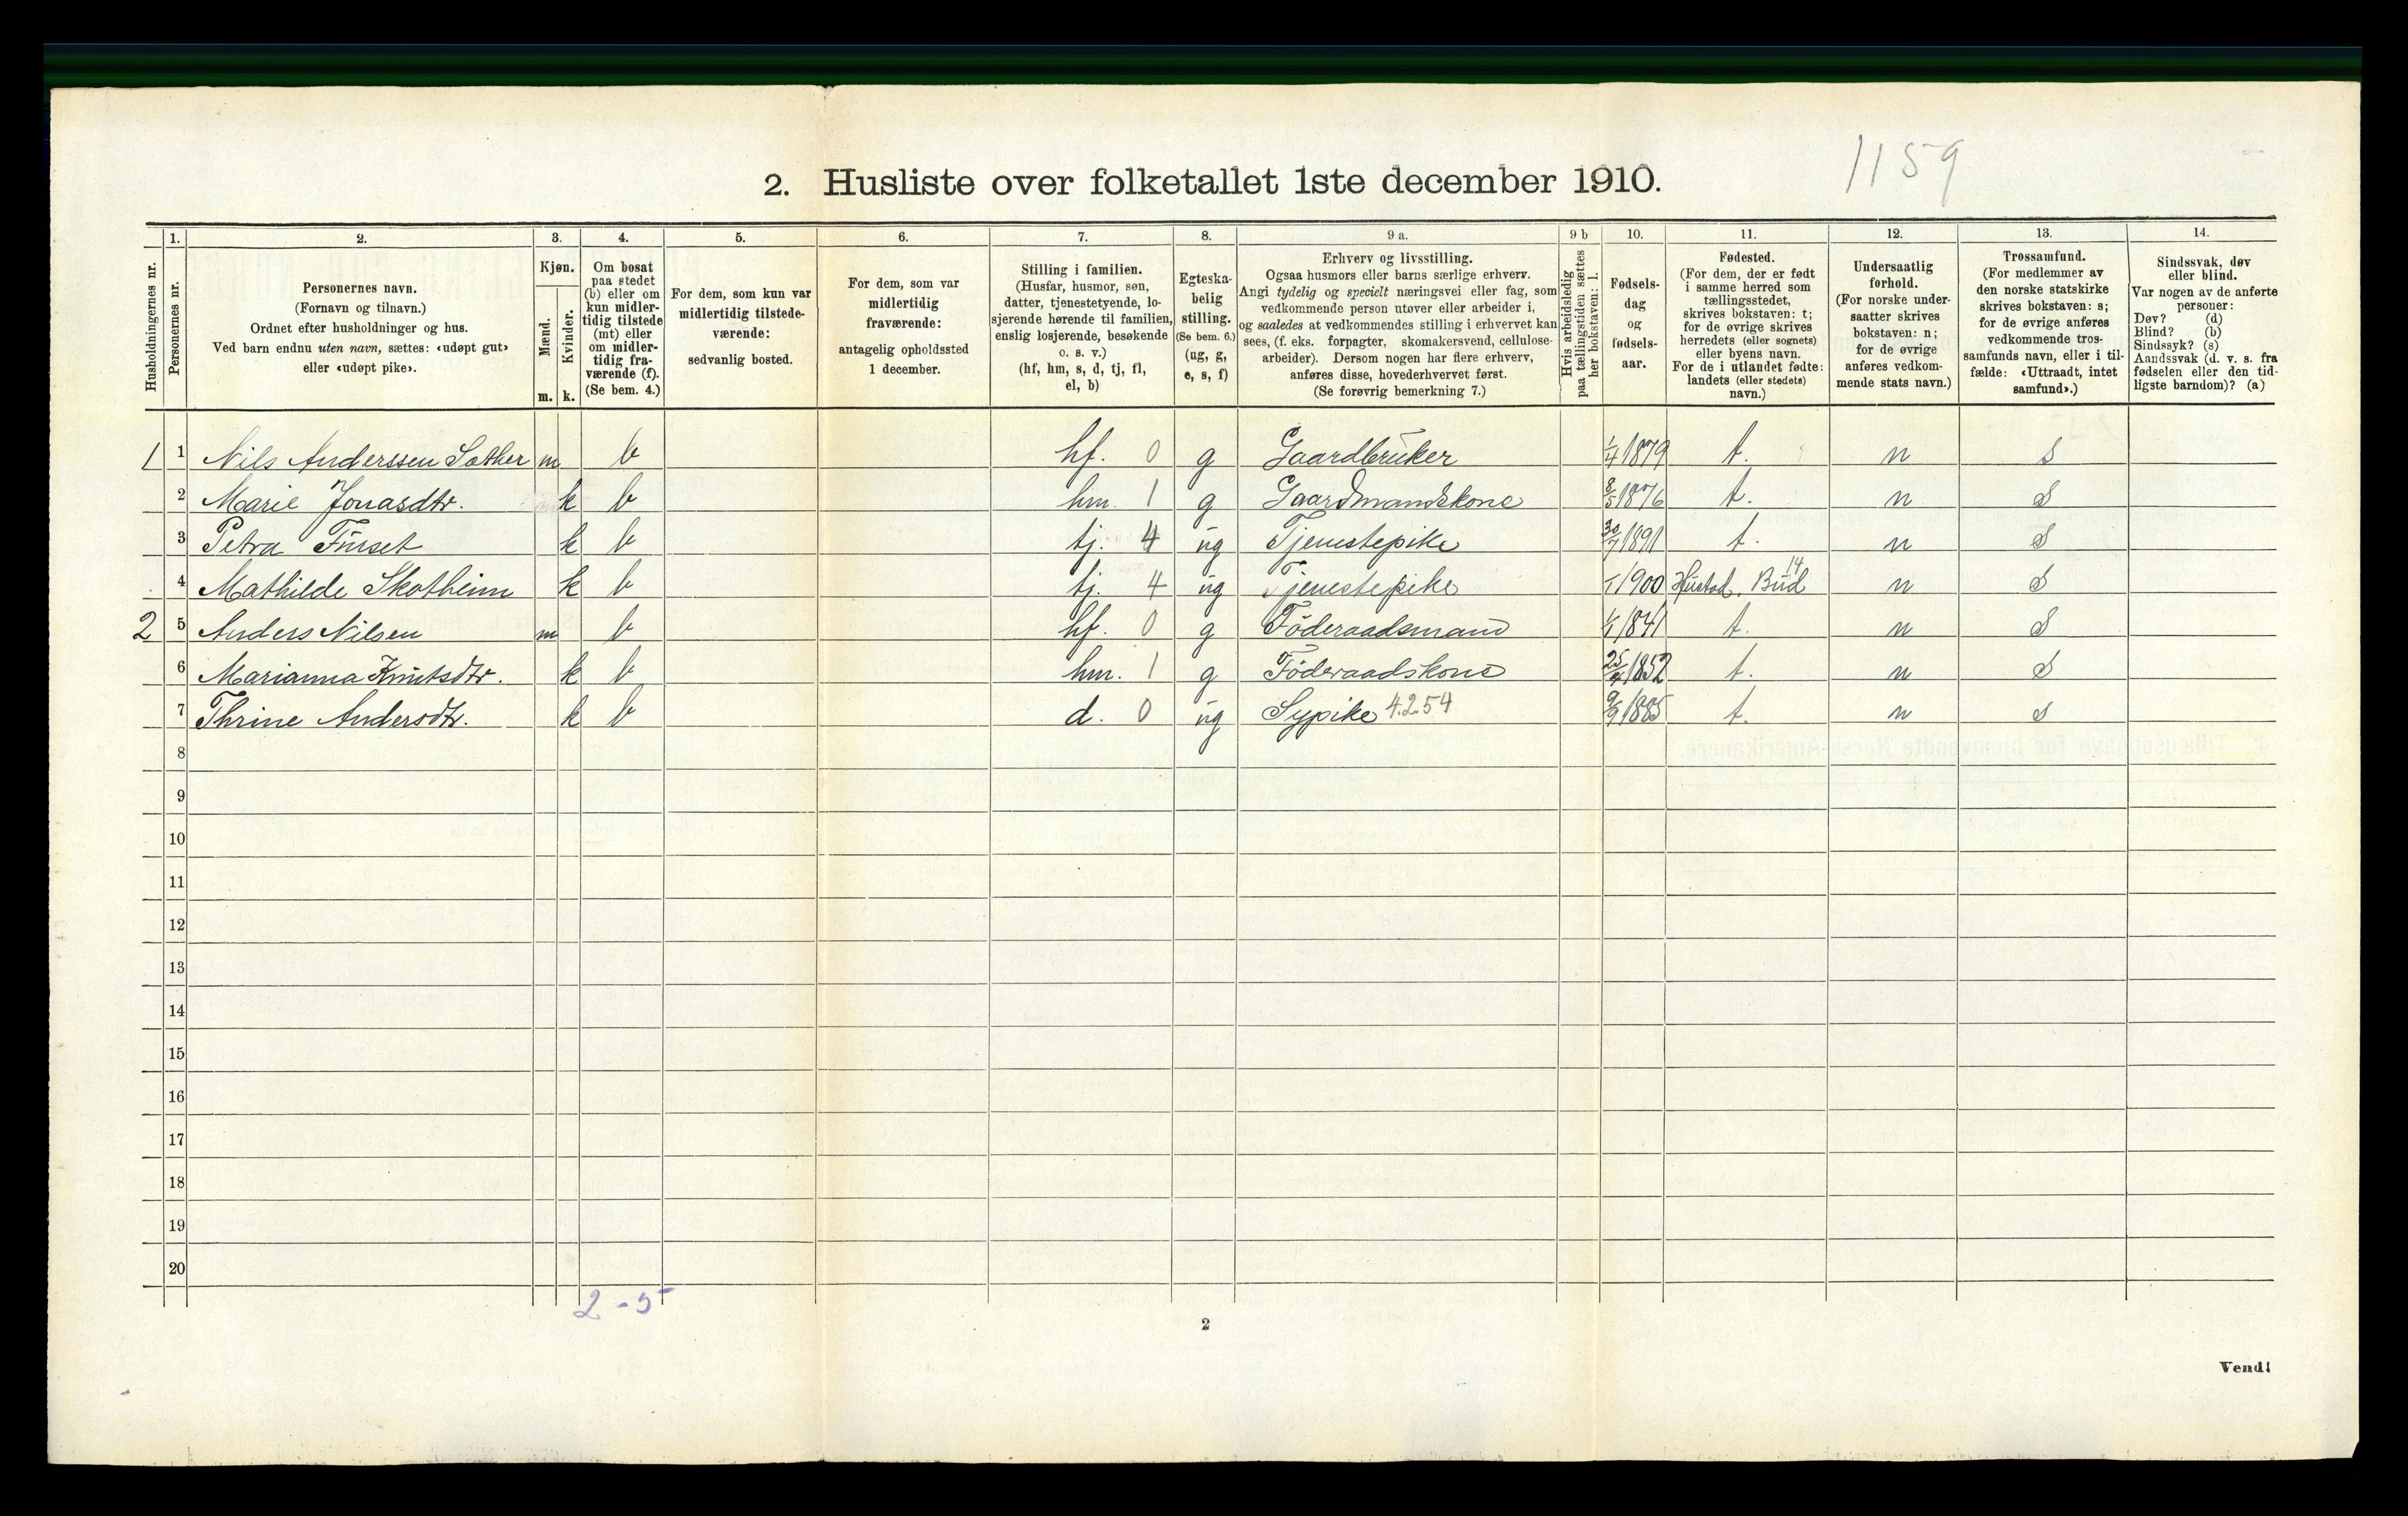 1159
2. Husliste over folketallet 1ste december 1910.
Husholdningernes nr.
1.
Personernes nr.
2.
Personernes navn.
(Fornavn og tilnavn.)
Ordnet efter husholdninger og hus.
Ved barn endnu uten navn, sættes: «udøpt gut»
eller «udøpt pike».
3.
Kjøn.
Mænd.
Kvinder.
m. k.
4.
Om bosat
paa stedet
(b) eller om
kun midler-
tidig tilstede
(mt) eller
om midler-
tidig fra-
værende (f).
(Se bem. 4.)
5.
For dem, som kun var
midlertidig tilstede-
værende:
sedvanlig bosted.
6.
For dem, som var
midlertidig
fraværende:
antagelig opholdssted
1 december.
7.
Stilling i familien.
(Husfar, husmor, søn,
datter, tjenestetyende, lo-
sjerende hørende til familien,
enslig losjerende, besøkende
o. s. v.)
(hf, hm, s, d, tj, fl,
el, b)
8.
Egteska-
belig
stilling.
(Se bem. 6.)
(ug, g,
e, s, f)
9 a.
Erhverv og livsstilling.
Ogsaa husmors eller barns særlige erhverv.
Angi tydelig og specielt næringsvei eller fag, som
vedkommende person utøver eller arbeider i,
og saaledes at vedkommendes stilling i erhvervet kan
sees, (f. eks. forpagter, skomakersvend, cellulose-
arbeider). Dersom nogen har flere erhverv,
anføres disse, hovederhvervet først.
(Se forøvrig bemerkning 7.)
9 b
Hvis arbeidsledig
paa tællingstiden sættes
her bokstaven: l.
10.
Fødsels-
dag
og
fødsels-
aar.
11.
Fødested.
(For dem, der er født
i samme herred som
tællingsstedet,
skrives bokstaven: t;
for de øvrige skrives
herredets (eller sognets)
eller byens navn.
For de i utlandet fødte:
landets (eller stedets)
navn.)
12.
Undersaatlig
forhold.
(For norske under-
saatter skrives
bokstaven: n;
for de øvrige
anføres vedkom-
mende stats navn.)
13.
Trossamfund.
(For medlemmer av
den norske statskirke
skrives bokstaven: s;
for de øvrige anføres
vedkommende tros-
samfunds navn, eller i til-
fælde: «Uttraadt, intet
samfund».)
14.
Sindssvak, døv
eller blind.
Var nogen av de anførte
personer:
Døv? (d)
Blind? (b)
Sindssyk? (s)
Aandssvak (d. v. s. fra
fødselen eller den tid-
ligste barndom)? (a)
1 1 Nils Anderssen Sother m b hf. 0 g Gaardbruker 1/4 1879 t. n s
2 Marie Jonasdtr. k b hm. 1 g Gaardmandskone 8/5 1876 t. n s
3 Petra Furset k b tj. 4 ug Tjenestepike 30/7 1891 t. n s
4 Mathilde Skotheim k b tj. 4 ug Tjenestepike 1900 Hustad, Bud 14 n s
2 5 Anders Nilsen m b hf. 0 g Föderaadsmand 1841 t. n s
6 Marianna Knutsdtr. k b hm. 1 g Föderaadskone 1852 t. n s
7 Thrine Andersdtr. k b d. 0 ug Sypike 4.2.54 9/9 1885 t. n s
8
9
10
11
12
13
14
15
16
17
18
19
20
2 - 5
2
Vend!